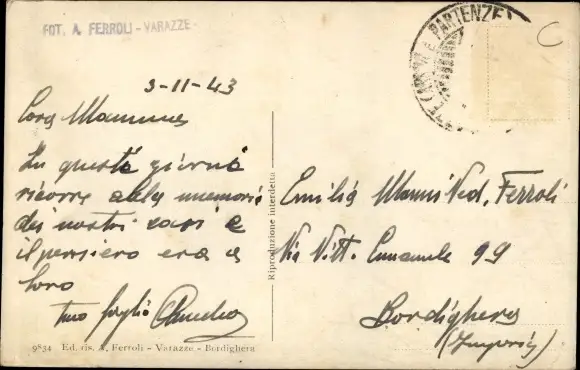 FOT. A. FERROLI - VARAZZE -
ARRIVI E PARTENZE
3-11-43
Cara Mamma
In questi giorni
ricorre alla memoria
dei nostri cari e
il pensiero era a
loro
tuo figlio Amedeo
Riproduzione interdetta
Emilia Manni Ved. Ferroli
Via Vitt. Emanuele 99
Bordighera
(Imperia)
9834 Ed. ris. A. Ferroli - Varazze - Bordighera